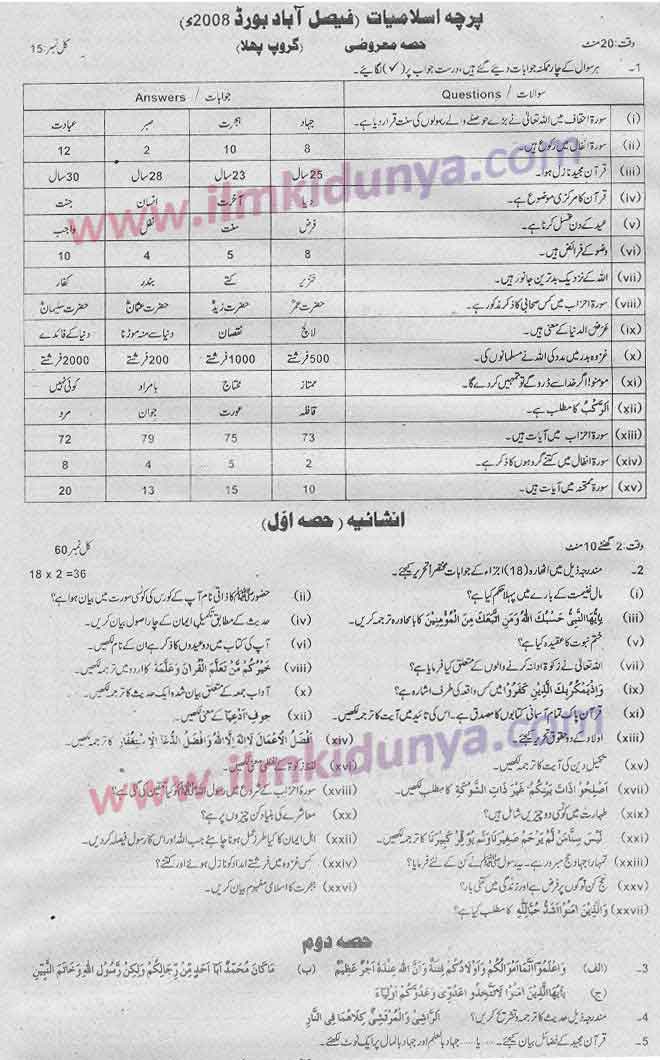 پرچہ اسلامیات (فیصل آباد بورڈ 2008ء)
وقت: 20 منٹ حصہ معروضی (گروپ پہلا) کل نمبر: 15
1۔ ہر سوال کے چار ممکنہ جوابات دیئے گئے ہیں، درست جواب پر (✓) لگائیے۔
سوالات / Questions جوابات / Answers
(i) سورۃ احقاف میں اللہ تعالیٰ نے بڑے حوصلے والے رسولوں کی سنت قرار دیا ہے۔ جہاد ہجرت صبر عبادت
(ii) سورۃ انفال میں رکوع ہیں۔ 8 10 2 12
(iii) قرآن مجید نازل ہوا۔ 25 سال 23 سال 28 سال 30 سال
(iv) قرآن کا مرکزی موضوع ہے۔ دنیا آخرت انسان جنت
(v) عید کے دن غسل کرنا ہے۔ فرض سنت نفل واجب
(vi) وضو کے فرائض ہیں۔ 8 5 4 10
(vii) اللہ کے نزدیک بدترین جانور ہیں۔ خنزیر کتے بندر کفار
(viii) سورۃ احزاب میں کس صحابی کا ذکر مذکور ہے۔ حضرت عمرؓ حضرت زیدؓ حضرت عثمانؓ حضرت سلیمانؑ
(ix) عرض الدنیا کے معنی ہیں۔ لالچ نقصان دنیا سے منہ موڑنا دنیا کے فائدے
(x) غزوہ بدر میں مدد کی اللہ نے مسلمانوں کی۔ 500 فرشتے 1000 فرشتے 200 فرشتے 2000 فرشتے
(xi) مومنو! اگر خدا سے ڈرو گے تو تمہیں کر دے گا۔ ممتاز محتاج بامراد کوئی نہیں
(xii) الرکب کا مطلب ہے۔ قافلہ عورت جوان مرد
(xiii) سورۃ احزاب میں آیات ہیں۔ 73 75 79 72
(xiv) سورۃ انفال میں کتنے گروہوں کا ذکر ہے۔ 2 5 4 8
(xv) سورۃ ممتحنہ میں آیات ہیں۔ 10 15 13 20
www.ilmkidunya.com
انشائیہ (حصہ اوّل)
وقت: 2 گھنٹے 10 منٹ کل نمبر 60
2۔ مندرجہ ذیل میں اٹھارہ (18) اجزاء کے جوابات مختصراً تحریر کیجئے۔ 18 x 2 =36
(i) مال غنیمت کے بارے میں پہلا حکم کیا ہے؟ (ii) حضورﷺ کا ذاتی نام آپ کے کورس کی کونسی سورت میں بیان ہوا ہے؟
(iii) یٰٓاَیُّھَا النَّبِیُّ حَسْبُکَ اللہُ وَمَنِ اتَّبَعَکَ مِنَ الْمُؤْمِنِیْنَ کا بامحاورہ ترجمہ کریں۔ (iv) حدیث کے مطابق تکمیلِ ایمان کے چار اصول بیان کریں۔
(v) ختم نبوت کا عقیدہ کیا ہے؟ (vi) آپ کی کتاب میں دو عیدوں کا ذکر ہے ان کے نام لکھیں۔
(vii) اللہ تعالیٰ نے زکوٰۃ ادا نہ کرنے والوں کے متعلق کیا فرمایا ہے؟ (viii) خَیْرُکُمْ مَّنْ تَعَلَّمَ الْقُرْاٰنَ وَعَلَّمَہٗ کا اردو میں ترجمہ لکھیں۔
(ix) وَاِذْ یَمْکُرُ بِکَ الَّذِیْنَ کَفَرُوْا میں کس واقعہ کی طرف اشارہ ہے؟ (x) آداب جمعہ کے متعلق بیان شدہ ایک حدیث کا ترجمہ لکھیں۔
(xi) قرآن پاک تمام آسمانی کتابوں کا مصدق ہے۔ اس کی تائید میں آیت کا ترجمہ لکھیں۔ (xii) جوف ادعیا کے معنی لکھیں۔
(xiii) اولاد کے دو حقوق تحریر کیجئے (xiv) اَفْضَلُ الْاَعْمَالِ لَا اِلٰہَ اِلَّا اللہُ وَاَفْضَلُ الدُّعَا اِلْاِسْتِغْفَارُ کا ترجمہ لکھیں۔
(xv) تکمیل دین کی آیت کا ترجمہ لکھیں۔ (xvi) لفظ زکوٰۃ کے لفظی معنی لکھیں۔
(xvii) اَصْلِحُوْا ذَاتَ بَیْنِکُمْ غَیْرَ ذَاتِ الشَّوْکَةِ کا مطلب لکھیں۔ (xviii) سورۃ احزاب کے شروع میں رسول اللہﷺ کو کیا تلقین کی گئی ہے؟
(xix) طہارت میں کونسی دو چیزیں شامل ہیں؟ (xx) معاشرے کی بنیاد کن چیزوں پر ہے؟
(xxi) لَیْسَ مِنَّا مَنْ لَّمْ یَرْحَمْ صَغِیْرَنَا وَلَمْ یُوَقِّرْ کَبِیْرَنَا کا ترجمہ لکھیں۔ (xxii) اہل ایمان کا کیا طرز عمل ہونا چاہئے جب اللہ اور اس کا رسول فیصلہ کر دیں۔
(xxiii) تمہارا جہاد حج مبرور ہے۔ یہ رسولﷺ نے کن کے لئے فرمایا؟ (xxiv) کس غزوہ میں فرشتے امداد کو نازل ہوئے اور کتنے؟
(xxv) حج کن لوگوں پر فرض ہے اور زندگی میں کتنی بار؟ (xxvi) ہجرت کا اسلامی مفہوم بیان کریں۔
(xxvii) وَالَّذِیْنَ اٰمَنُوْا اَشَدُّ حُبًّا لِّلّٰہِ کا مطلب کیا ہے؟
www.ilmkidunya.com
حصہ دوم
3۔ (الف) وَاعْلَمُوْا اَنَّمَا اَمْوَالُکُمْ وَاَوْلَادُکُمْ فِتْنَةٌ وَّاَنَّ اللہَ عِنْدَہٗ اَجْرٌ عَظِیْمٌ (ب) مَا کَانَ مُحَمَّدٌ اَبَا اَحَدٍ مِّنْ رِّجَالِکُمْ وَلٰکِنْ رَّسُوْلَ اللہِ وَخَاتَمَ النَّبِیّٖنَ
(ج) یٰٓاَیُّھَا الَّذِیْنَ اٰمَنُوْا لَا تَتَّخِذُوْا عَدُوِّیْ وَعَدُوَّکُمْ اَوْلِیَآءَ
4۔ مندرجہ ذیل حدیث کا ترجمہ و تشریح کریں؟ اَلرَّاشِیْ وَالْمُرْتَشِیْ کِلَاھُمَا فِی النَّارِ
5۔ قرآن مجید کے فضائل بیان کیجئے۔ .... یا ..... جہاد بالعلم اور جہاد بالمال پر ایک نوٹ لکھئے۔